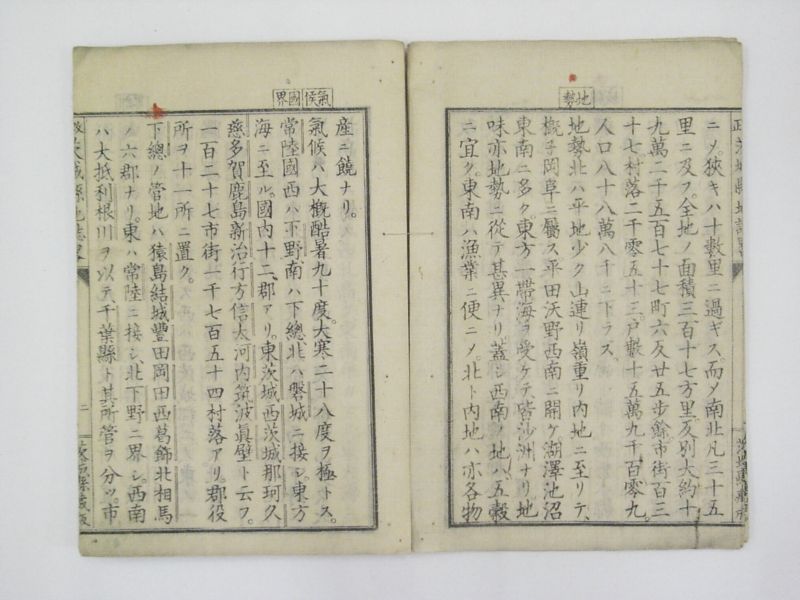 地勢
ニメ。狹キハ十數里ニ過ギス。而メ南北凡三十五
里ニ及フ。全地ノ面積三百十七方里反別大約十
九萬二千五百七十七町六反廿五步餘市街百三
十七村落二千零五十三戶數十五萬九千百零九。
人口八十八萬八千ニ下ラス。
地勢北ハ平地少ク山連リ嶺重リ內地ニ至リテ、
概子岡阜ニ屬ス平田沃野西南ニ開ケ。湖澤池沼
東南ニ多ク。東方一帶海ヲ受ケテ、皆沙洲ナリ地
味亦地勢ニ從テ甚異ナリ。蓋シ西南ノ地ハ五穀
ニ宜ク。東南ハ漁業ニ便ニメ。北ト內地ハ亦各物
氣候
國界
產ニ饒ナリ。
氣候ハ大概酷暑九十度。大寒二十八度ヲ極トス。
常陸國西ハ下野南ハ下總北ハ磐城ニ接シ東方
海ニ至ル。國內十二郡アリ。東茨城西茨城那珂久
慈多賀鹿島新治行方信太河內筑波眞壁ト云フ。
一百二十七市街一千七百五十四村落アリ。郡役
所ヲ十一所ニ置ク。
下總ノ管地ハ猿島結城豐田岡田西葛飾北相馬
ノ六郡ナリ。東ハ常陸ニ接シ、北下野ニ界シ。西南
ハ大抵利根川ヲ以テ、千葉縣ト其所管ヲ分ツ。市
茨城縣地誌畧
二